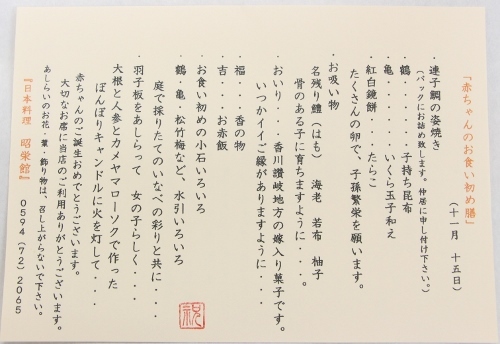 「赤ちゃんのお食い初め膳」
(十一月 十五日)
・連子鯛の姿焼き
(パックにお詰め致します。仲居に申し付け下さい。)
・鶴・・・・・・子持ち昆布
・亀・・・・・・いくら玉子和え
・紅白鏡餅・・・・たらこ
たくさんの卵で、子孫繁栄を願います。
・お吸い物
名残り鱧(はも) 海老 若布 柚子
骨のある子に育ちますように・・・・。
・おいり・・・・香川讃岐地方の嫁入り菓子です。
いつかイイご縁がありますように・・・・
・福・・・香の物
・吉・・・お赤飯
・お食い初めの小石いろいろ
・鶴・亀・松竹梅など、水引いろいろ
庭で採りたてのいなべの彩りと共に・・・・
・羽子板をあしらって 女の子らしく・・・・
・大根と人参とカメヤマローソクで作った
ぼんぼりキャンドルに火を灯して・・・・
赤ちゃんのご誕生おめでとうございます。
大切なお席に当店のご利用ありがとうございます。
あしらいのお花・葉・飾り物は、召し上がらないで下さい。
『日本料理 昭栄館』 0594(72)2065